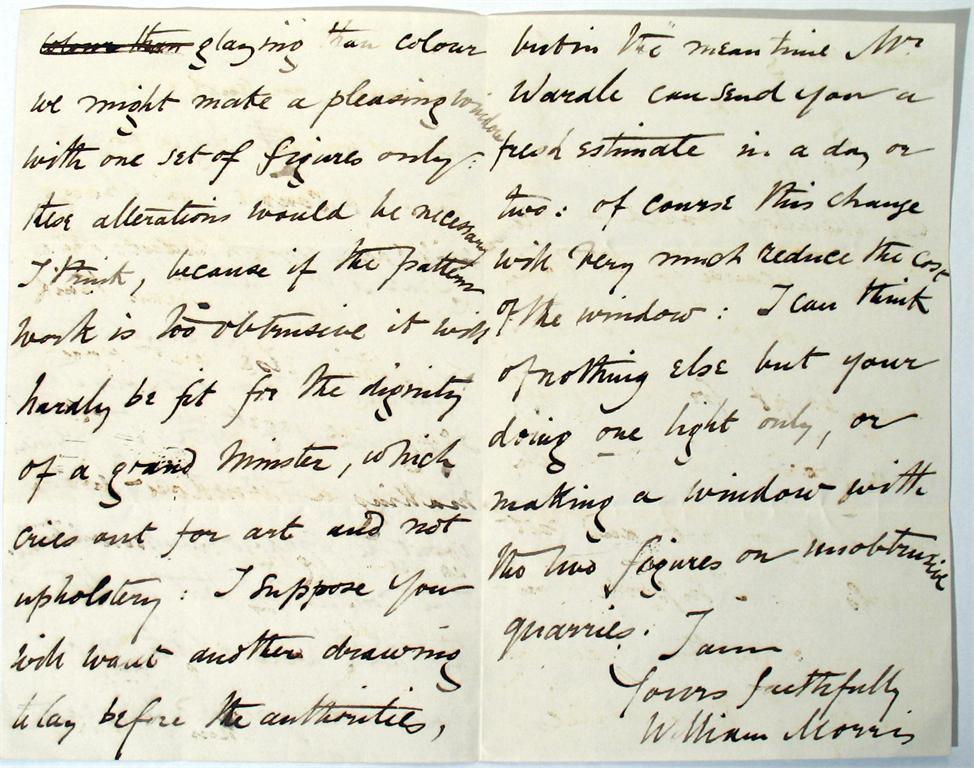 colour than glazing than colour
we might make a pleasing window
with one set of figures only:
these alterations would be necessary
I think, because if the pattern
work is too obtrusive it will
hardly be fit for the dignity
of a grand Minster, which
cries out for art and not
upholstery: I suppose you
will want another drawing
to lay before the authorities,
but in the mean time Mr
Wardle can send you a
fresh estimate in a day or
two: of course this change
will very much reduce the cost
of the window: I can think
of nothing else but your
doing one light only, or
making a window with
the two figures on unobtrusive
quarries. I am
Yours faithfully
William Morris